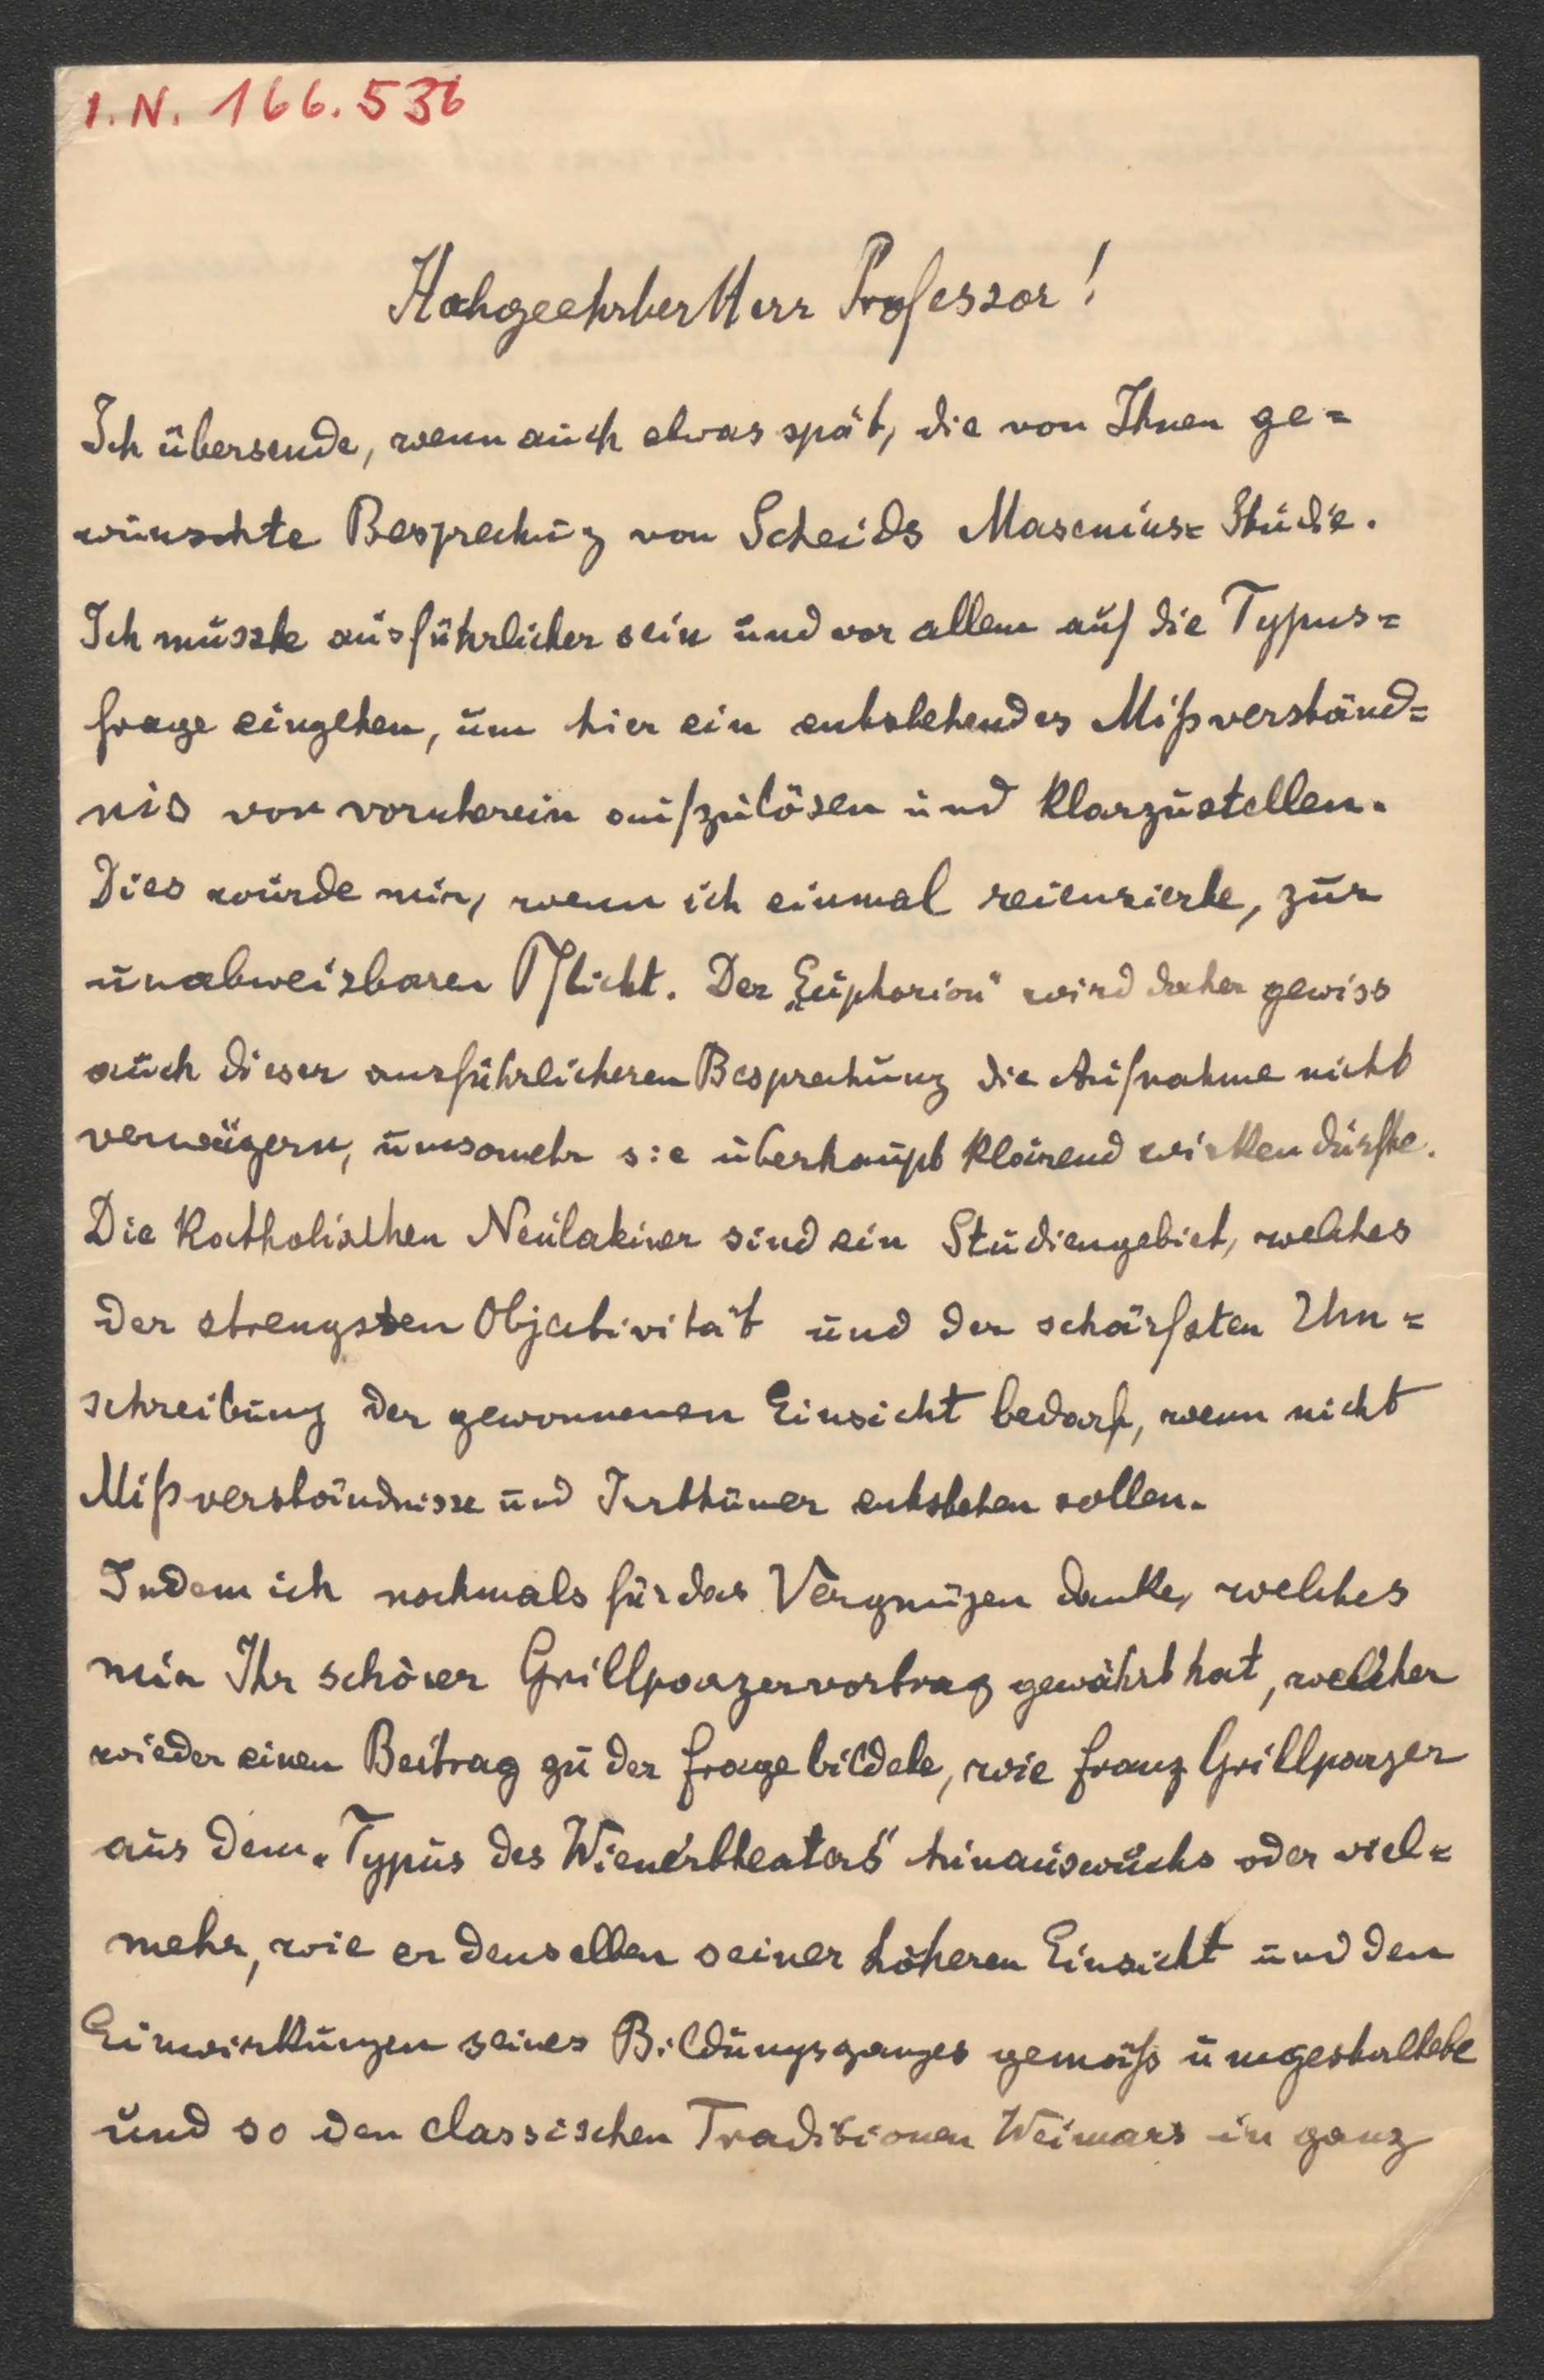 I.N. 166.536
Hochgeehrter Herr Professor!
Ich übersende, wenn auch etwas spät, die von Ihnen ge=
wünschte Besprechung von Scheids Masenius= Studie.
Ich musste ausführlicher sein und vor allem auf die Typus=
frage eingehen, um hier ein entstehendes Mißverständ=
nis von vornherein aufzulösen und klarzustellen.
Dies wurde mir, wenn ich einmal recensierte, zur
unabweisbaren Pflicht. Der „Euphorion" wird daher gewiss
auch dieser ausführlicheren Besprechung die Aufnahme nicht
verweigern, umsomehr sie überhaupt klärend wirken dürfte.
Die katholischen Neulateiner sind ein Studiengebiet, welches
der strengsten Objectivität und der schärfsten Um=
schreibung der gewonnenen Einsicht bedarf, wenn nicht
Mißverständnisse und Irrthümer entstehen sollen.
Indem ich nochmals für das Vergnügen danke, welches
mir Ihr schöner Grillparzervortrag gewährt hat, welcher
wieder einen Beitrag zu der Frage bildete, wie Franz Grillparzer
aus dem „Typus des Wienertheaters" hinauswuchs oder viel=
mehr, wie er denselben seiner höheren Einsicht und den
Einwirkungen seines Bildungsganges gemäß umgestaltete
und so den classischen Traditionen Weimars in ganz